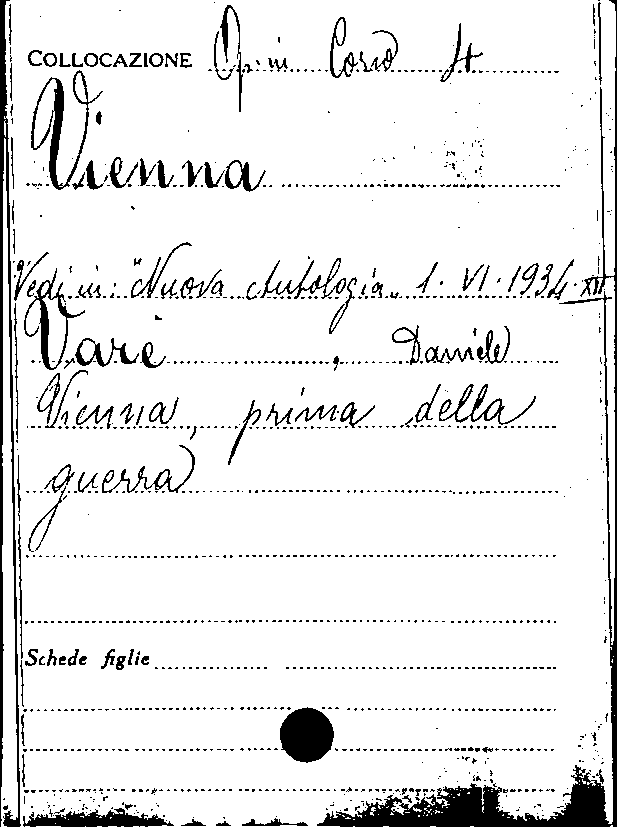 COLLOCAZIONE Op. in Corso 4
Vienna
Vedi in: "Nuova Antologia„ 1. VI. 1934. XII
Varè, Daniele
Vienna, prima della
guerra
Schede figlie